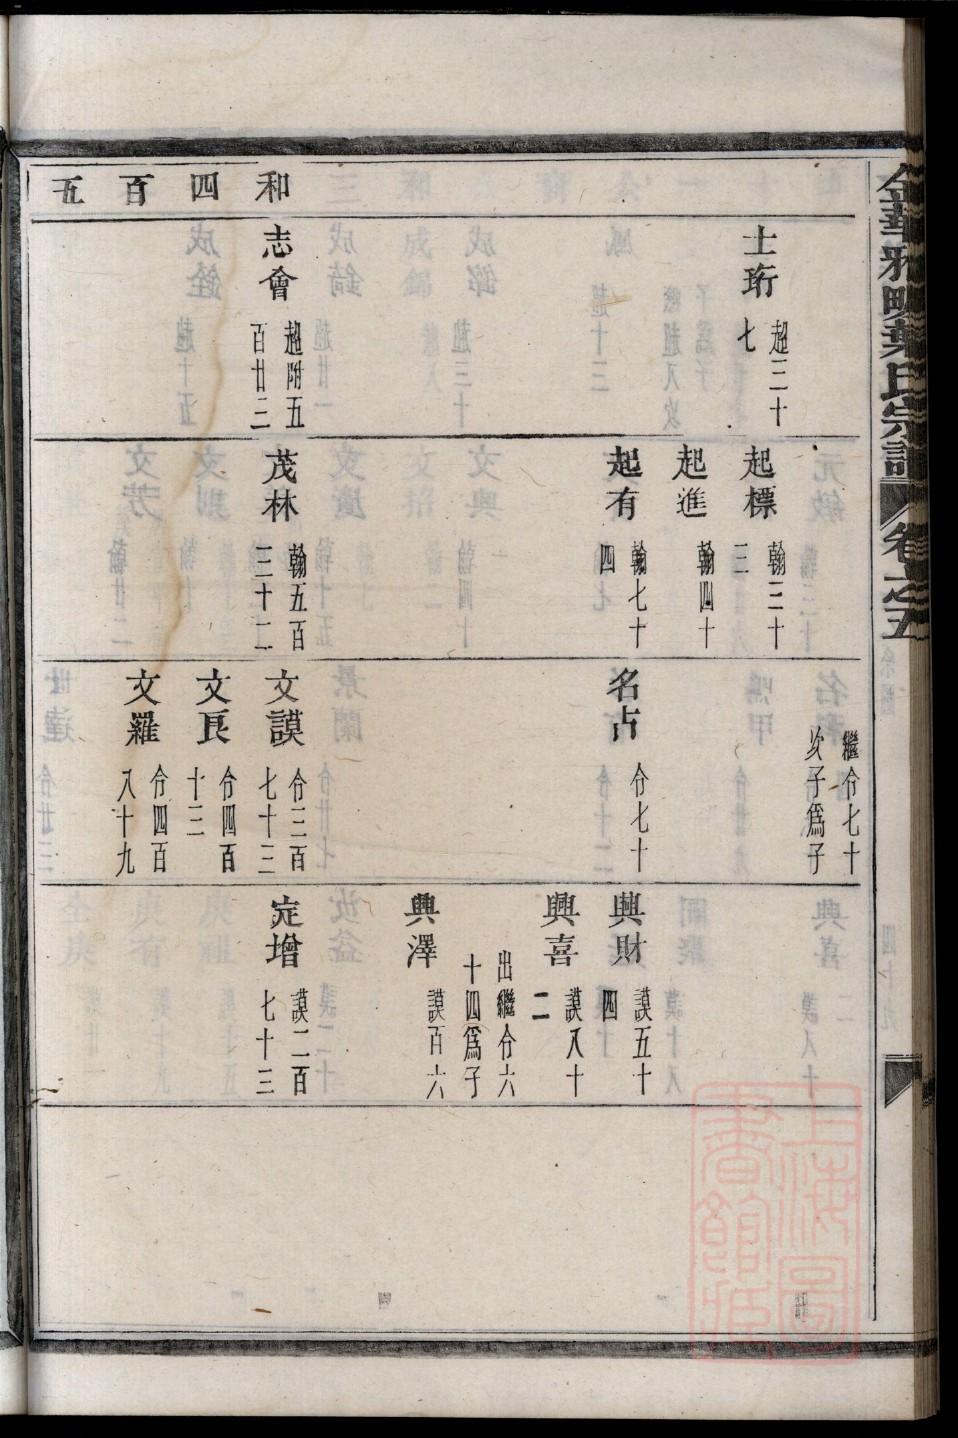 金華邢畈葉氏宗譜 卷之五
和四百五
士珩 超三十
七
志會 超附五
百廿三
起標 翰三十
三
起進 翰四十
起有 翰七十
四
茂林 翰五百
三十二
繼令七十
次子爲子
名占 令七十
文謨 令三百
七十三
文長 令四百
十三
文羅 令四百
八十九
興財 謨五十
四
興喜 謨八十
二
出繼令六
十四爲子
興澤 謨百六
定增 謨二百
七十三
上海圖
書館藏